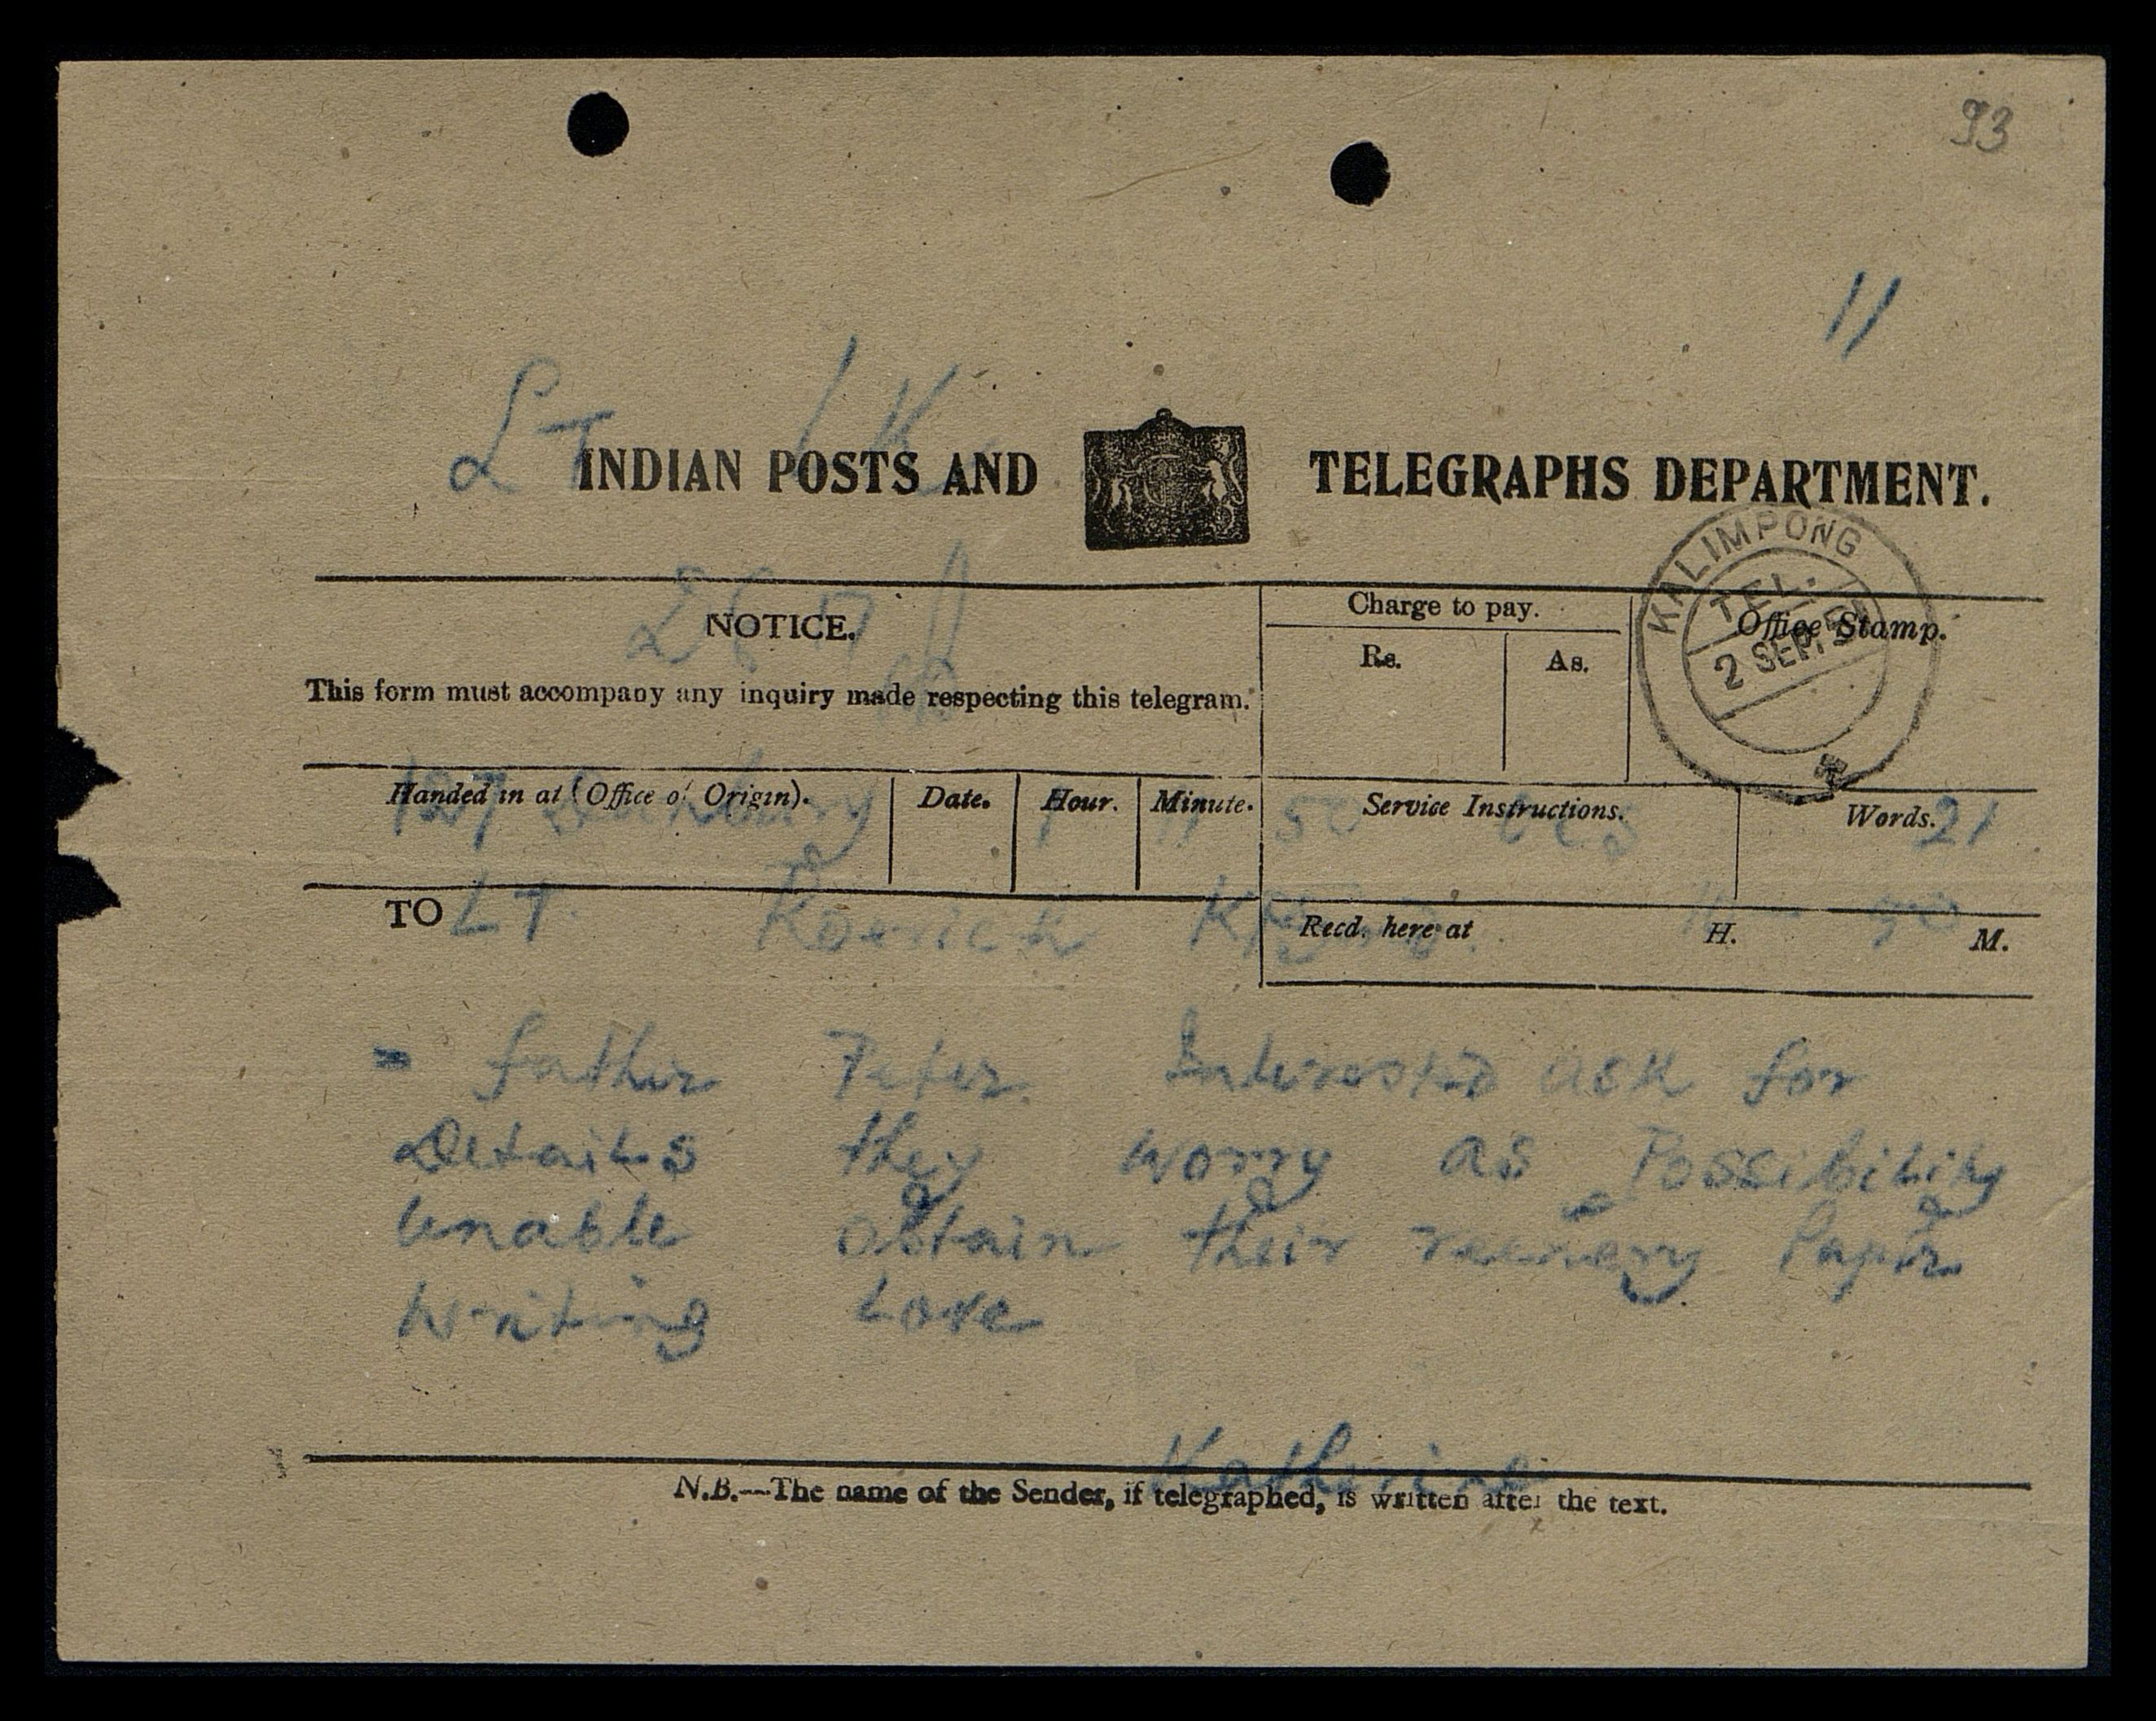 93
11
LT
INDIAN POSTS AND TELEGRAPHS DEPARTMENT.
KALIMPONG
TEL.
2 SEP.
NOTICE.
Charge to pay.
Office Stamp.
Rs. As.
This form must accompany any inquiry made respecting this telegram.
Handed in at (Office of Origin). Date. Hour. Minute. Service Instructions. Words. 21
TO LT Roerich
Recd. here at H. M.
= father Peter Interested ask for
Details they worry as Possibility
Unable obtain their Paper
Writing Love
Katherine
N.B.—The name of the Sender, if telegraphed, is written after the text.